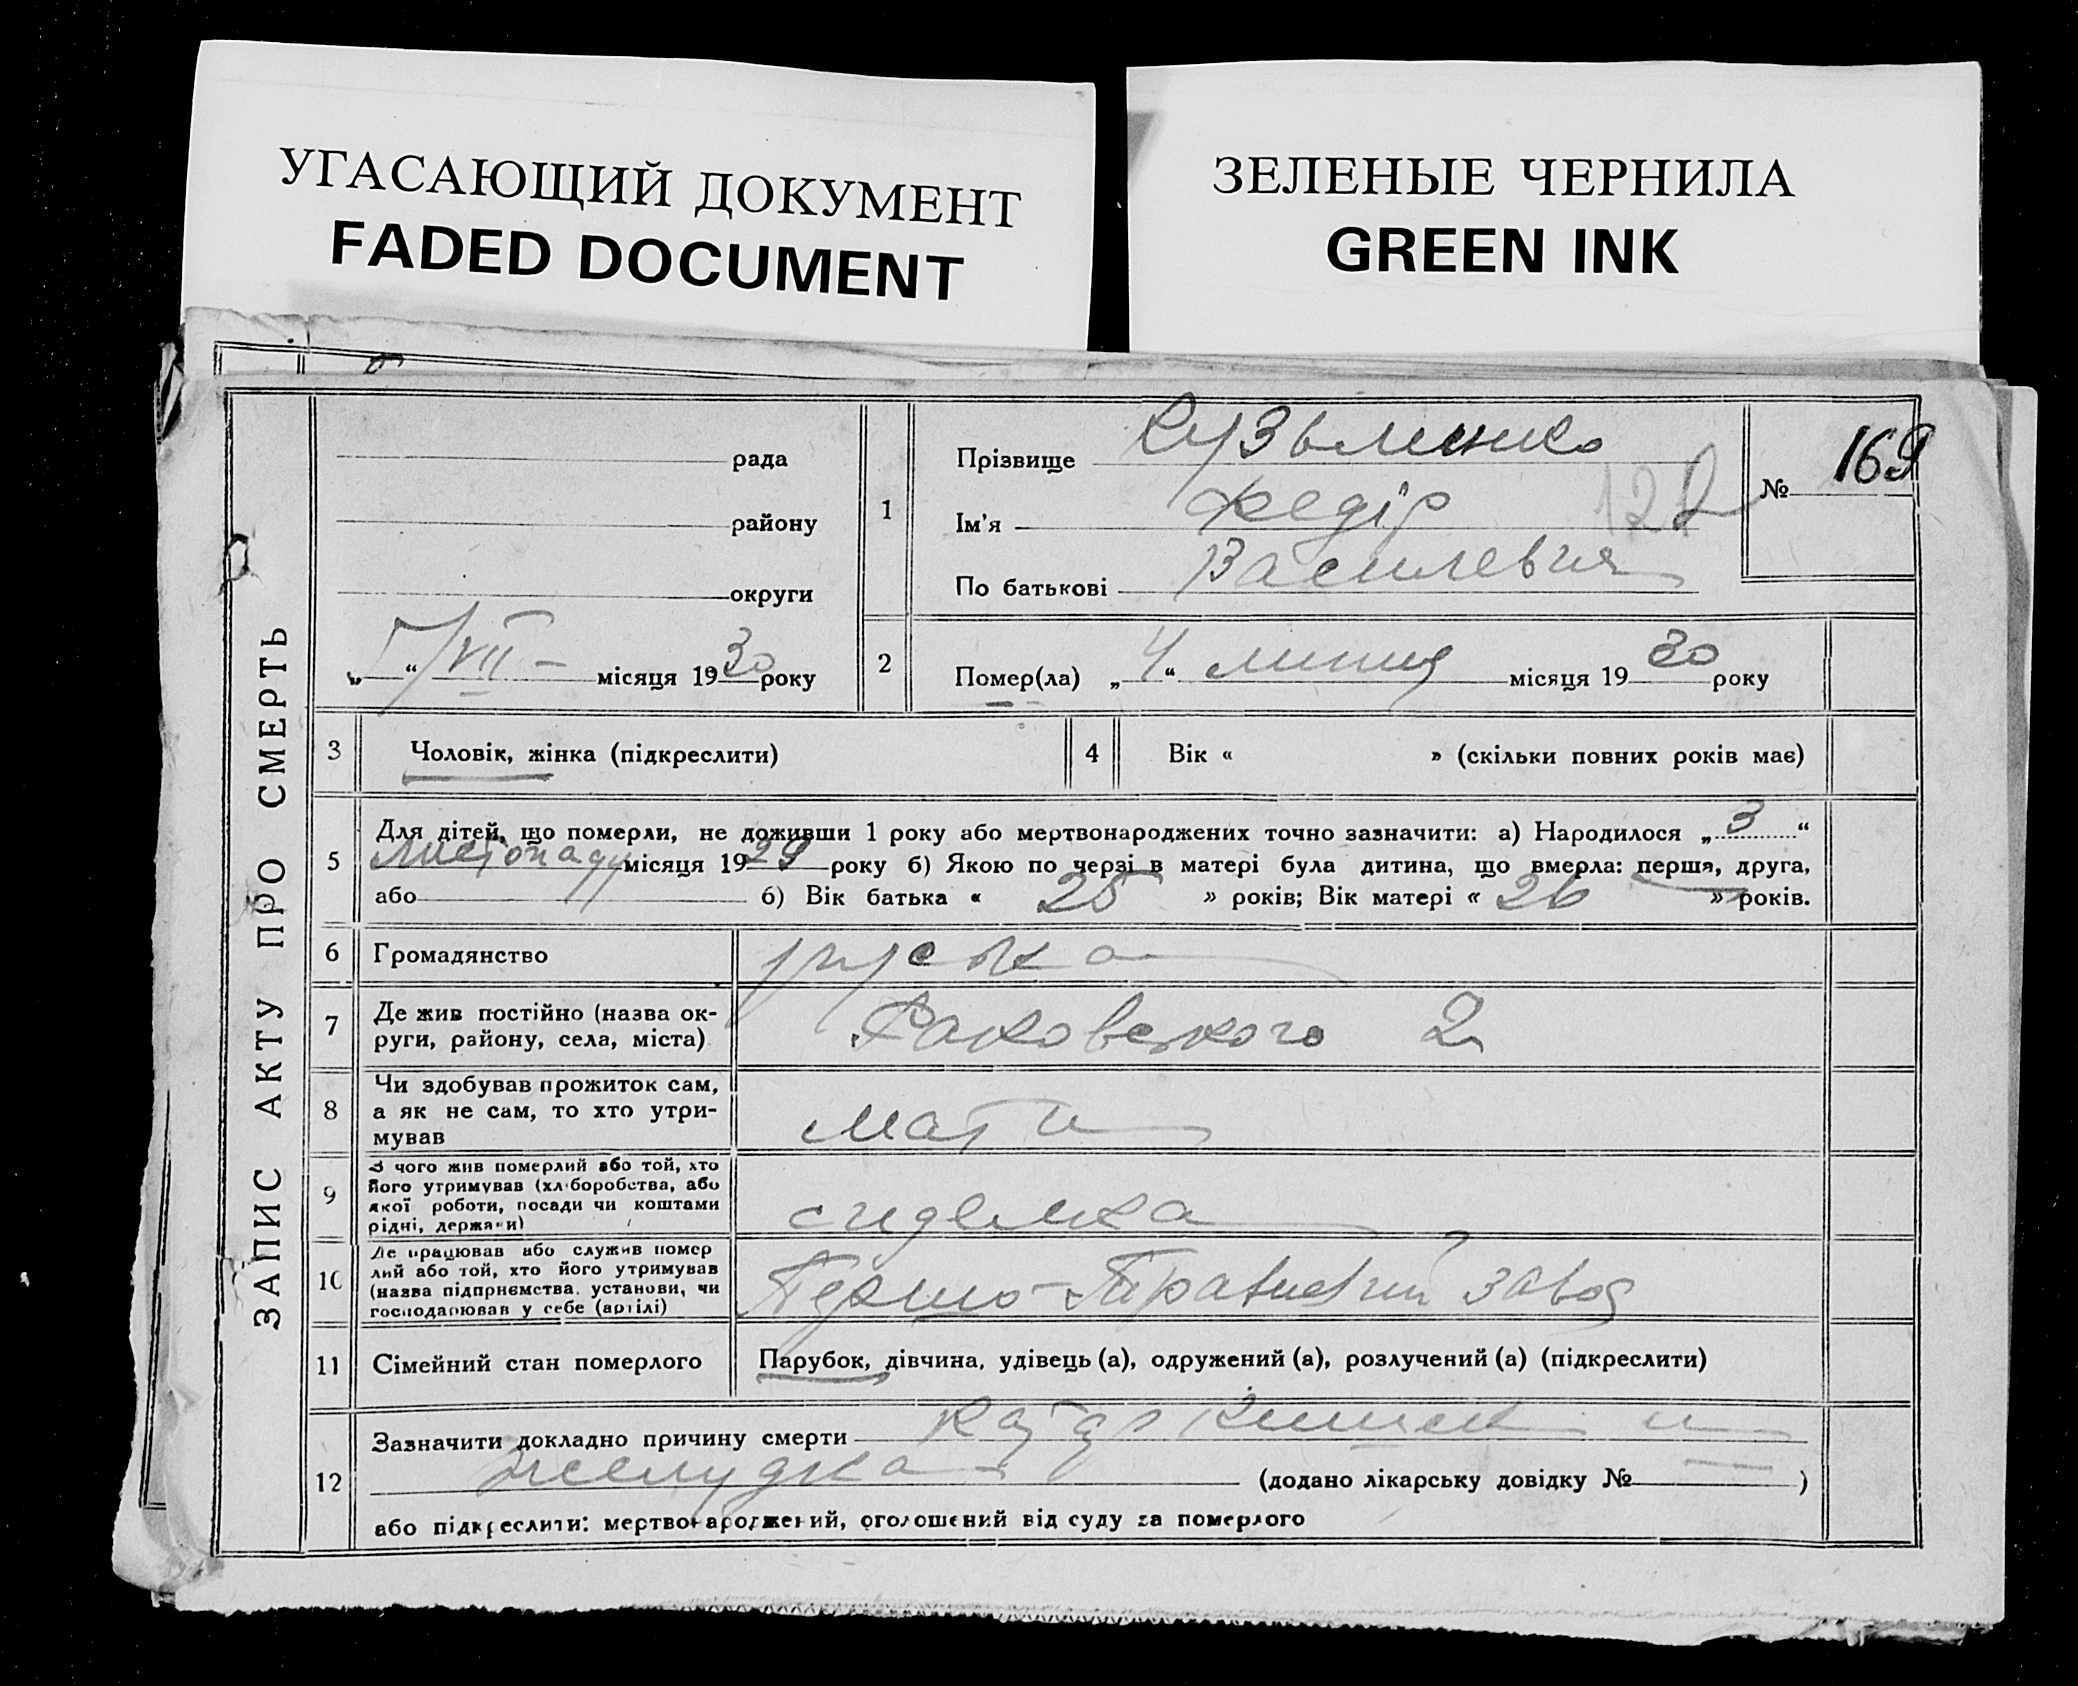 УГАСАЮЩИЙ ДОКУМЕНТ
FADED DOCUMENT
ЗЕЛЕНЫЕ ЧЕРНИЛА
GREEN INK
ЗАПИС АКТУ ПРО СМЕРТЬ
рада
району
округи
„ “ /VII – місяця 1930 року
1 Прізвище Кузьменко
Ім’я Федір
По батькові Василевич
№ 169
122
2 Помер(ла) „4“ липня місяця 1930 року
3 Чоловік, жінка (підкреслити)
4 Вік « » (скільки повних років має)
5 Для дітей, що померли, не доживши 1 року або мертвонароджених точно зазначити: а) Народилося „3“
Листопаду місяця 1929 року б) Якою по черзі в матері була дитина, що вмерла: перша, друга,
або б) Вік батька « 25 » років; Вік матері « 26 » років.
6 Громадянство
7 Де жив постійно (назва ок-
руги, району, села, міста)
Раковського 2
8 Чи здобував прожиток сам,
а як не сам, то хто утри-
мував
мати
9 З чого жив померлий або той, хто
його утримував (хліборобства, або
якої роботи, посади чи коштами
рідні, держави)
сиделка
10 Де працював або служив помер
лий або той, хто його утримував
(назва підприємства, установи, чи
господарював у себе (артілі)
Першо-Травневий завод
11 Сімейний стан померлого
Парубок, дівчина, удівець (а), одружений (а), розлучений (а) (підкреслити)
12 Зазначити докладно причину смерти катар Кишек и
желудка (додано лікарську довідку № — )
або підкреслити: мертвонароджений, оголошений від суду за померлого